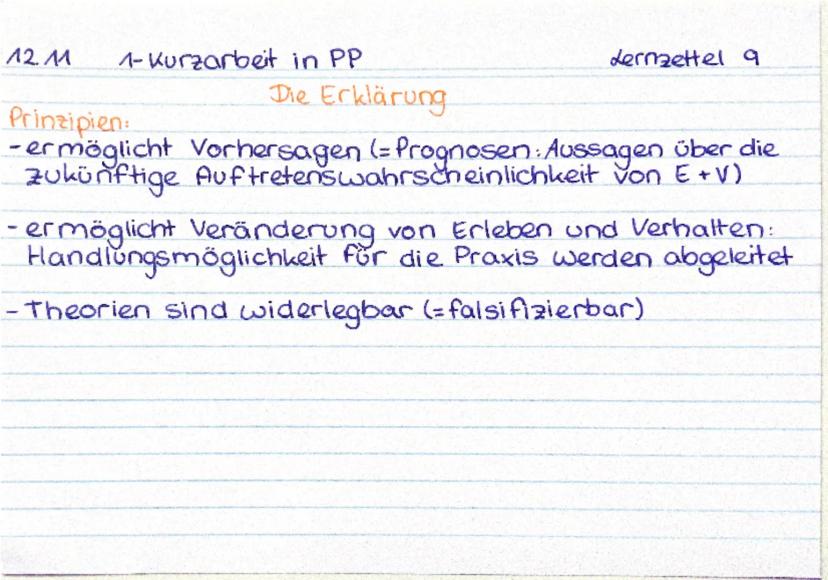 12.11 1-Kurzarbeit in PP Lernzettel 9
Die Erklärung
Prinzipien:
- ermöglicht Vorhersagen (= Prognosen: Aussagen über die
zukünftige Auftretenswahrscheinlichkeit von E + V)
- ermöglicht Veränderung von Erleben und Verhalten:
Handlungsmöglichkeit für die Praxis werden abgeleitet
- Theorien sind widerlegbar (= falsifizierbar)